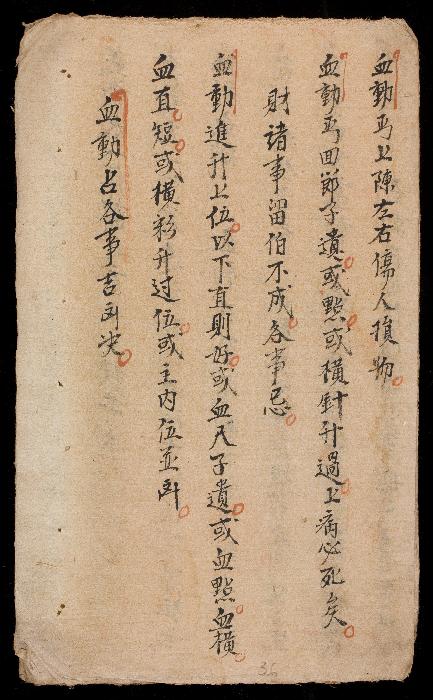 血動丐上陳左右傷人損物
血動丐回節子遺或點或橫針升過上病必死矣
財諸事留伯不成各事忌
血動進升上位以下直則好或血尺子遺或血點血橫
血直短或橫彩升过位或主內位並凶
血動占各事吉凶决
36